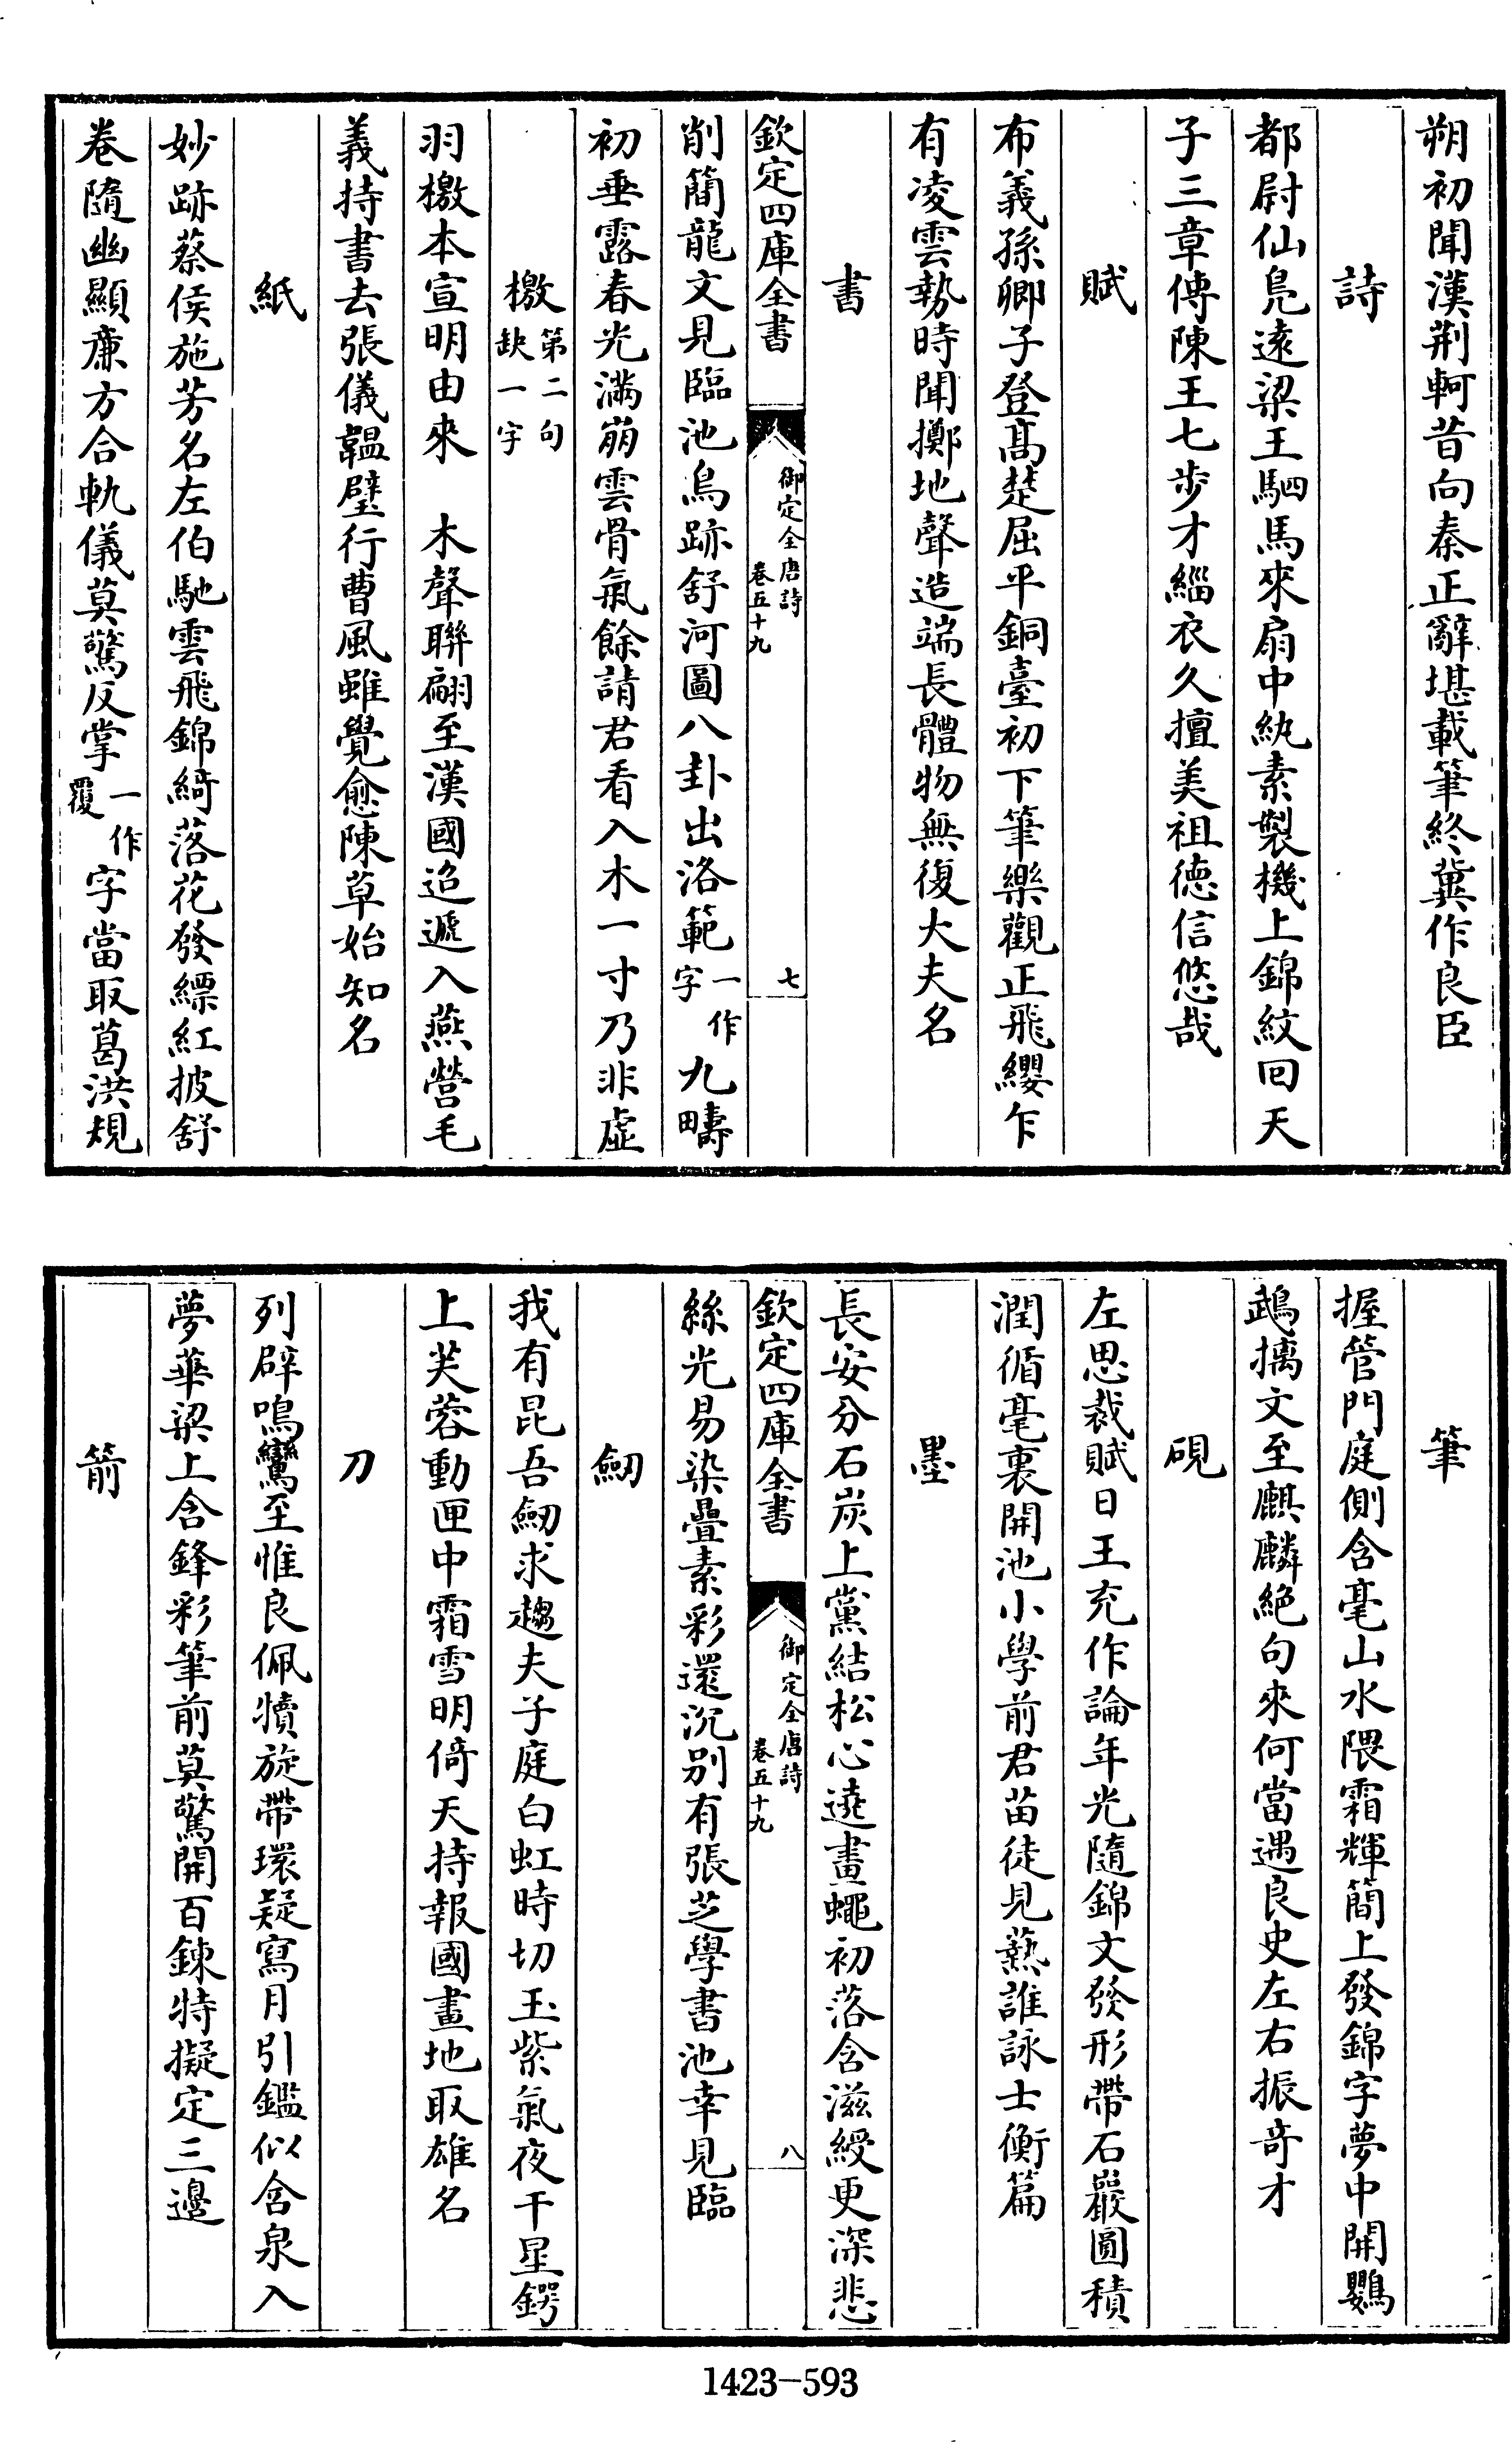 朔初聞漢荆軻昔向秦正辭堪載筆終冀作良臣
詩
都尉仙鳧遠梁王駟馬來扇中紈素製機上錦紋回天
子三章傳陳王七步才緇衣久擅美祖徳信悠哉
賦
布義孫卿子登髙楚屈平銅臺初下筆樂觀正飛纓乍
有凌雲勢時聞擲地聲造端長體物無復大夫名
書
欽定四庫全書
御定全唐詩
卷五十九
七
削簡龍文見臨池鳥跡舒河圖八卦出洛範一作字九疇
初垂露春光滿崩雲骨氣餘請君看入木一寸乃非虛
檄第二句缺一字
羽檄本宣明由來　木聲聯翩至漢國迢遞入燕營毛
義持書去張儀韞璧行曹風雖覺愈陳草始知名
紙
妙跡蔡侯施芳名左伯馳雲飛錦綺落花發縹紅披舒
卷隨幽顯廉方合軌儀莫驚反掌一作覆字當取葛洪規
筆
握管門庭側含毫山水隈霜輝簡上發錦字夢中開鸚
鵡摛文至麒麟絶句來何當遇良史左右振奇才
硯
左思裁賦日王充作論年光隨錦文發形帶石巖圓積
潤循毫裏開池小學前君苗徒見爇誰詠士衡篇
墨
長安分石炭上黨結松心遶畫蠅初落含滋綬更深悲
欽定四庫全書
御定全唐詩
卷五十九
八
絲光易染疊素彩還沉别有張芝學書池幸見臨
劒
我有昆吾劒求趨夫子庭白虹時切玉紫氣夜干星鍔
上芙蓉動匣中霜雪明倚天持報國畫地取雄名
刀
列辟鳴鸞至惟良佩犢旋帶環疑寫月引鑑似含泉入
夢華梁上含鋒彩筆前莫驚開百鍊特擬定三邊
箭
1423-593